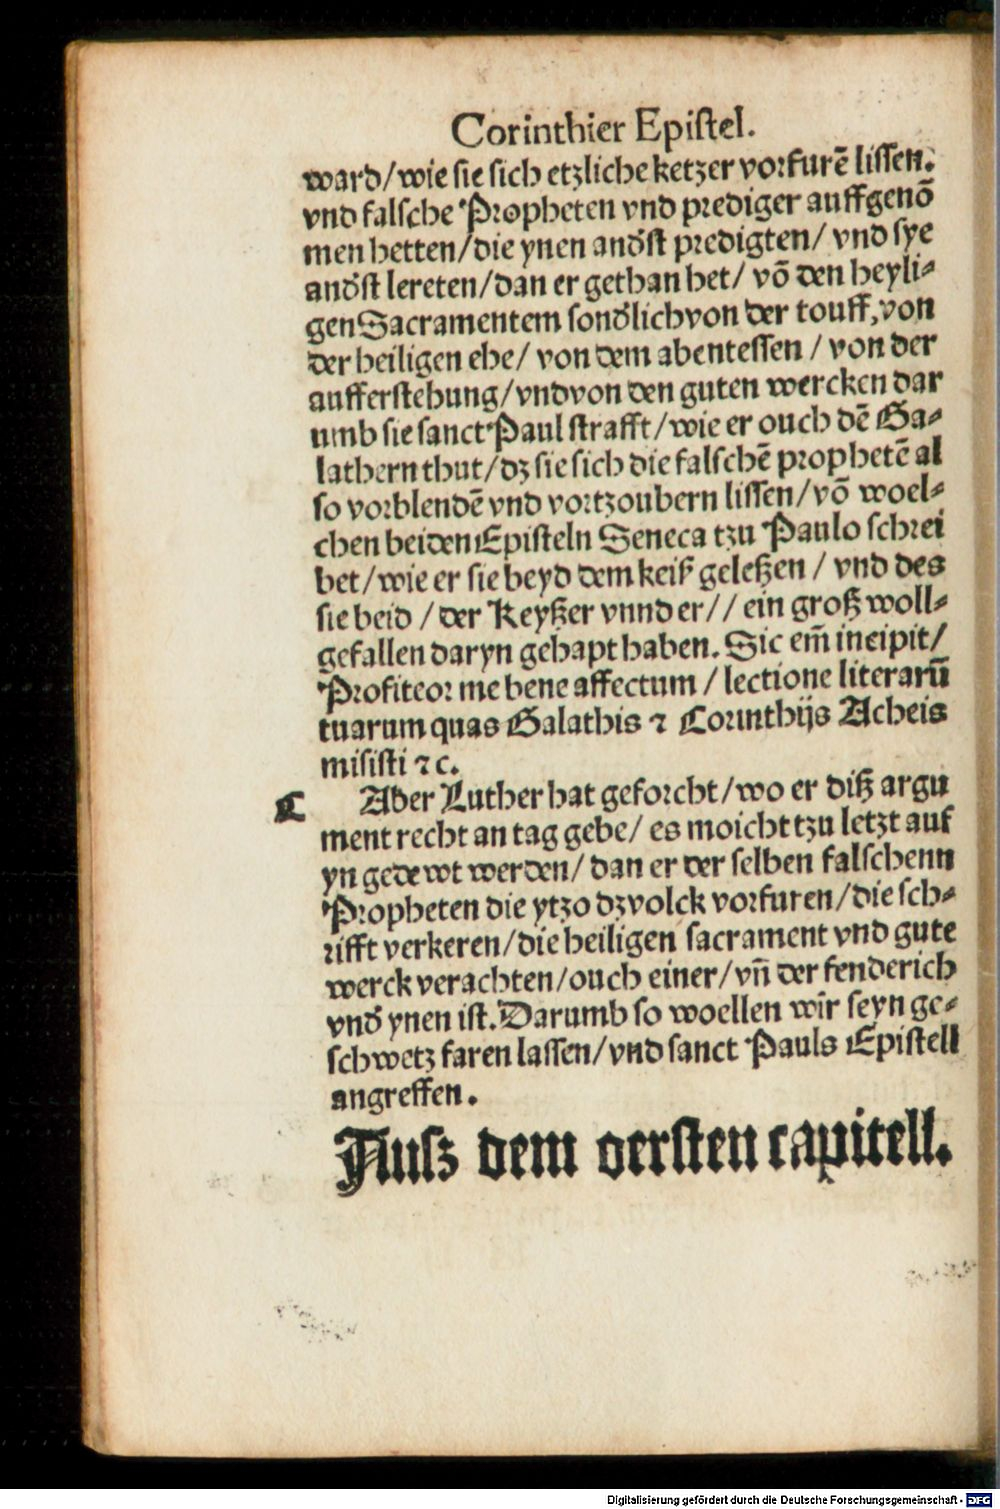 Corinthier Epistel.
ward/wie sie sich etzliche ketzer vorfurē lissen.
vnd falsche Propheten vnd prediger auffgenō
men hetten/die ynen andͤst predigten/ vnd sye
andͤst lereten/dan er gethan het/ vō den heyli-
gen Sacramentem sondͤlich von der touff, von
der heiligen ehe/ von dem abentessen / von der
aufferstehung/ vnd von den guten wercken dar
umb sie sanct Paul strafft/wie er ouch dē Ga-
lathern thut/dz sie sich die falschē prophetē al
so vorblendē vnd vortzoubern lissen/vō woel-
chen beiden Episteln Seneca tzu Paulo schrei
bet/wie er sie beyd dem keiß geleßen / vnd des
sie beid / der Keyßer vnnd er// ein groß woll-
gefallen daryn gehapt haben. Sic em̄ incipit/
Profiteor me bene affectum / lectione literarū
tuarum quas Galathis ⁊ Corinthijs Acheis
misisti ⁊c.
C Aber Luther hat geforcht/wo er diß argu
ment recht an tag gebe/ es moicht tzu letzt auf
yn gedewt werden/ dan er der selben falschenn
Propheten die ytzo dz volck vorfuren/die sch-
rifft verkeren/die heiligen sacrament vnd gute
werck verachten/ouch einer/ vn̄ der fenderich
vndͤ ynen ist. Darumb so woellen wir seyn ge-
schwetz faren lassen/vnd sanct Pauls Epistell
angreffen.
Ausz dem oersten capitell.
Digitalisierung gefördert durch die Deutsche Forschungsgemeinschaft - DFG